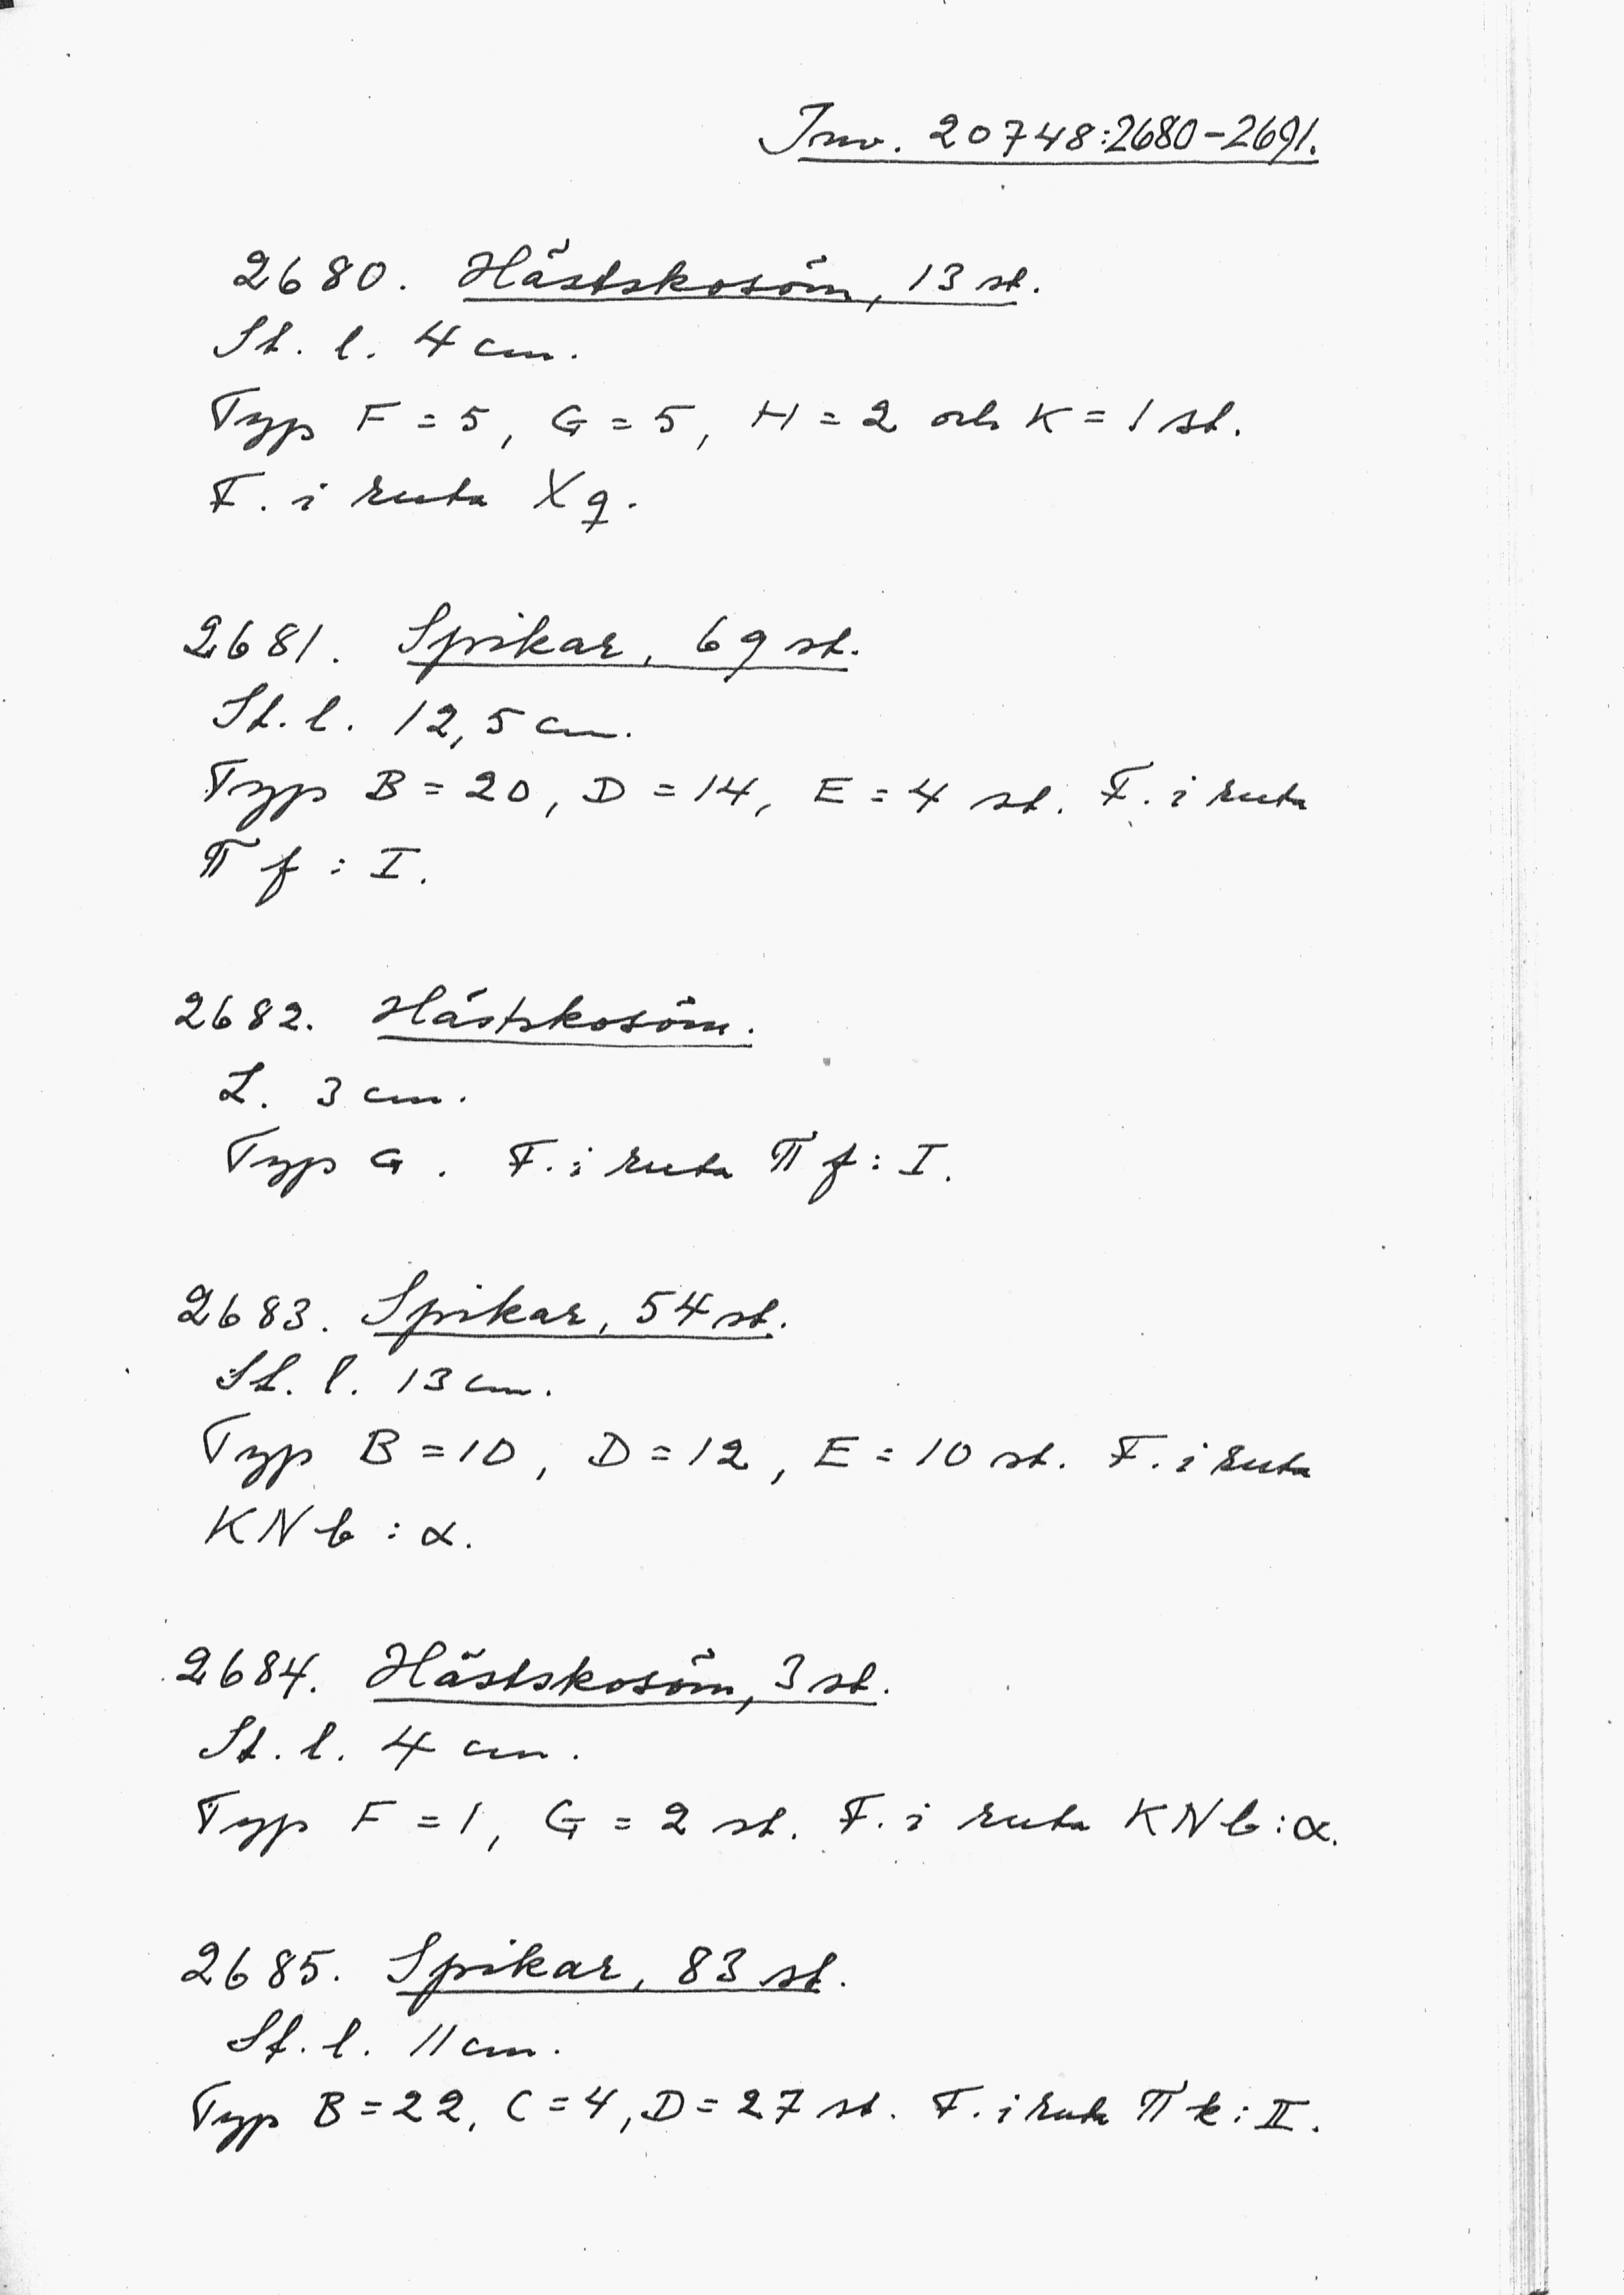 Inv. 20748:2680-2691.
2680. Hästskosöm, 13 st.
St. l. 4 cm.
Typ F = 5, G = 5, H = 2 och K = 1 st.
F. i ruta X q.
2681. Spikar, 69 st.
St. l. 12,5 cm.
Typ B = 20, D = 14, E = 4 st. F. i ruta
Π f : I.
2682. Hästskosöm.
L. 3 cm.
Typ G. F. i ruta Π f : I.
2683. Spikar, 54 st.
St. l. 13 cm.
Typ B = 10, D = 12, E = 10 st. F. i ruta
KN b : α.
2684. Hästskosöm, 3 st.
St. l. 4 cm.
Typ F = 1, G = 2 st. F. i ruta KN b : α.
2685. Spikar, 83 st.
St. l. 11 cm.
Typ B = 22, C = 4, D = 27 st. F. i ruta Π k : II.